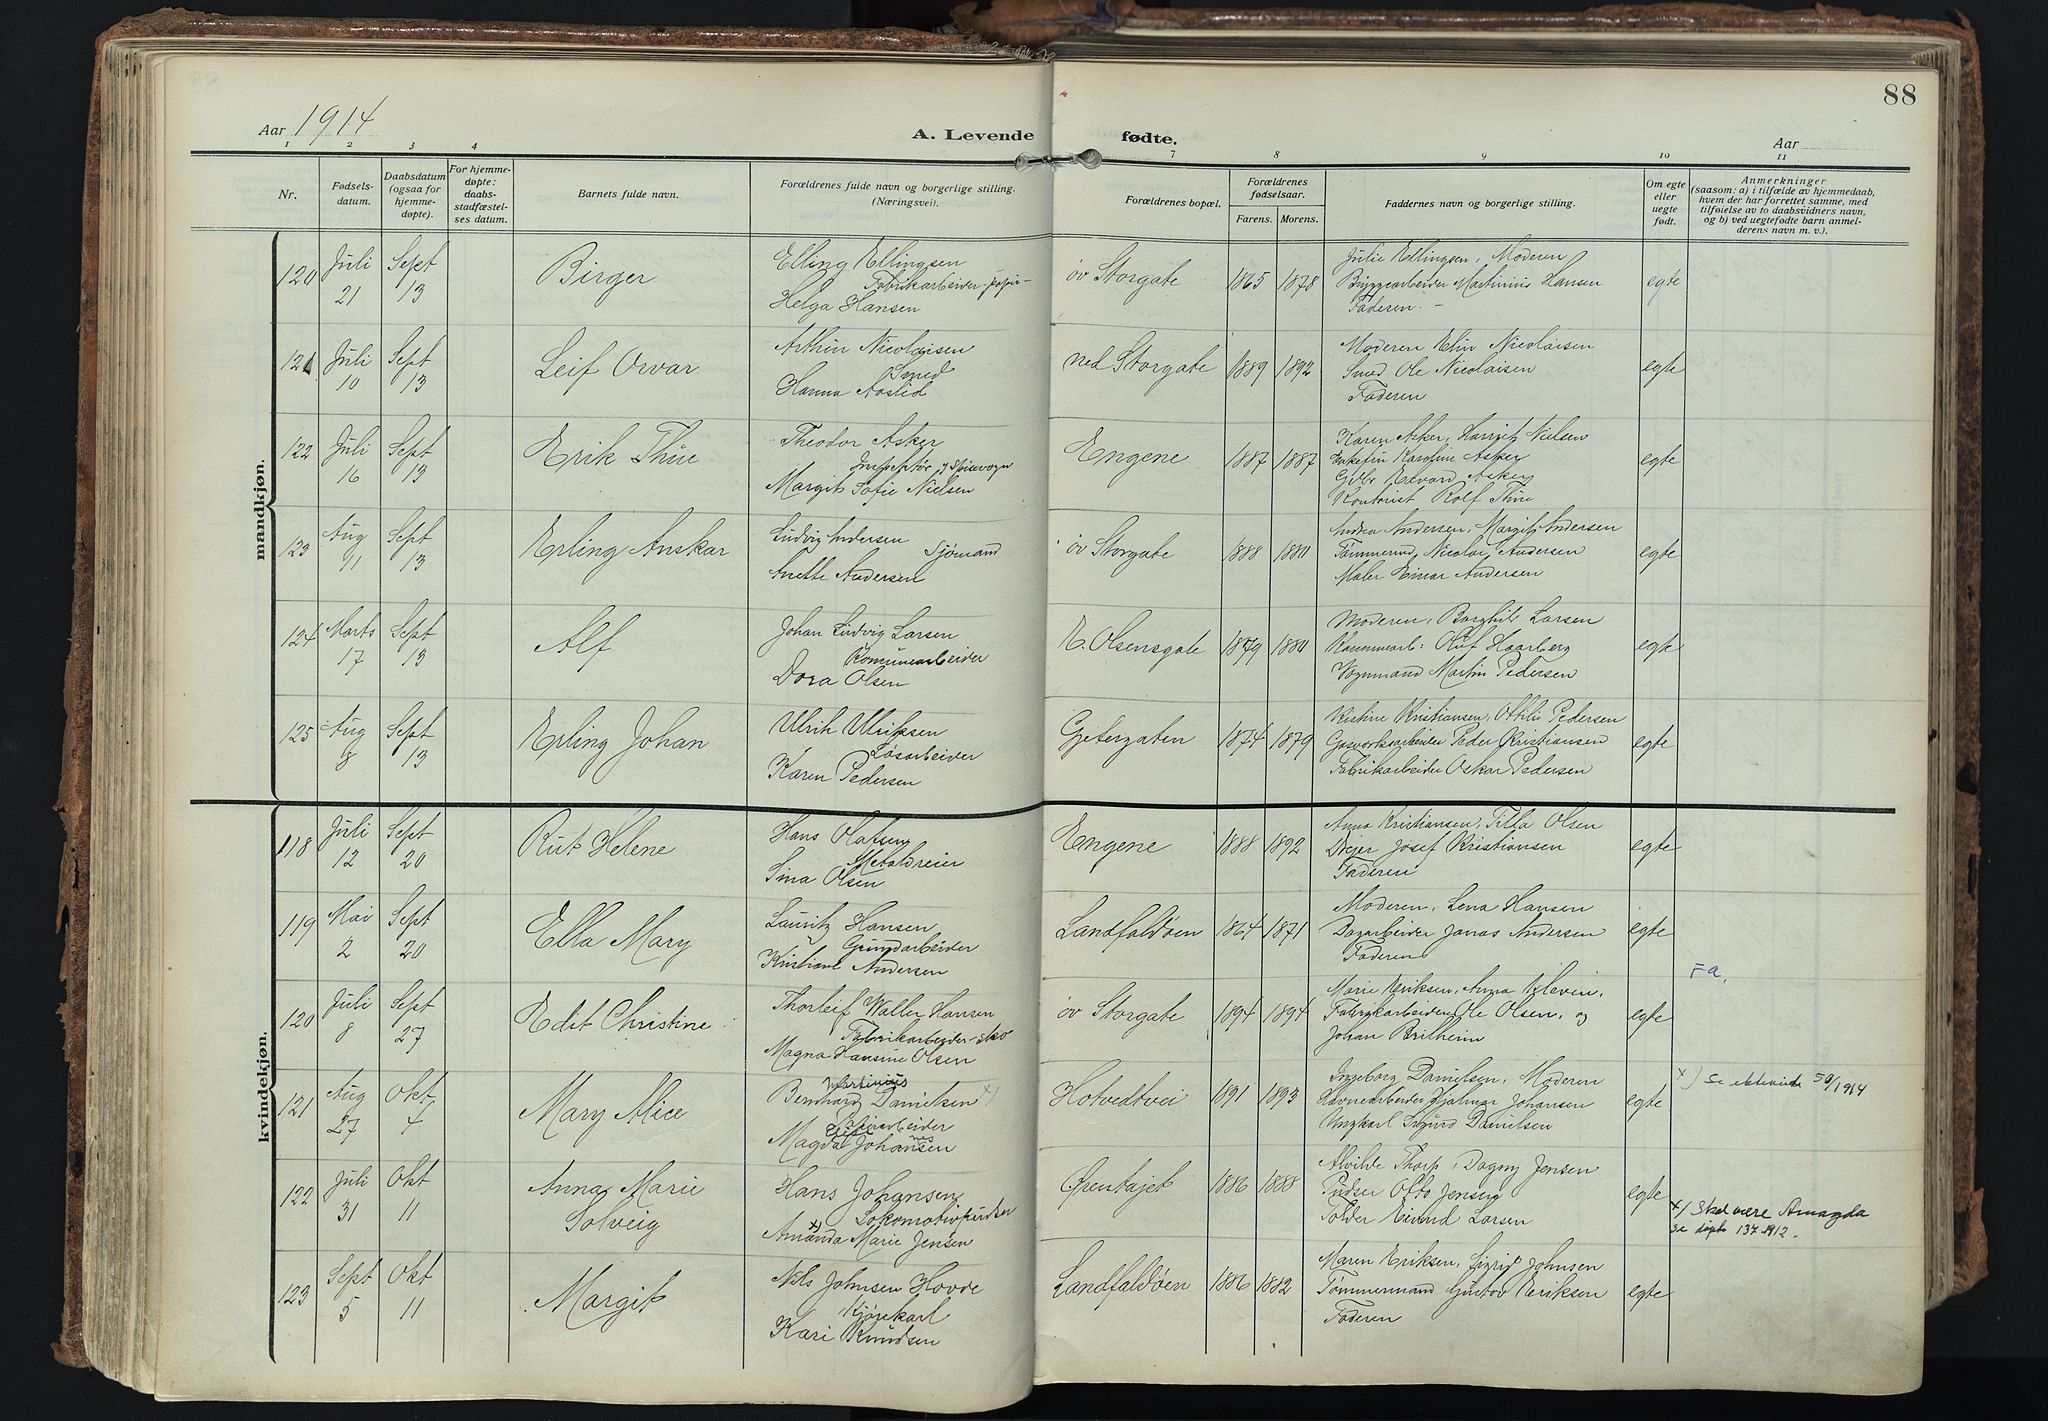 88
Aar 1914
A. Levende fødte.
Aar
1 2 3 4 7 8 9 10 11
Nr.
Fødsels-
datum.
Daabsdatum
(ogsaa for
hjemme-
døpte).
For hjemme-
døpte:
daabs-
stadfæstel-
ses datum.
Barnets fulde navn.
Forældrenes fulde navn og borgerlige stilling.
(Næringsvei).
Forældrenes bopæl.
Forældrenes
fødselsaar.
Farens. Morens.
Faddernes navn og borgerlige stilling.
Om egte
eller
uegte
født.
Anmerkninger
(saasom: a) i tilfælde av hjemmedaab,
hvem der har forrettet samme, med
tilføielse av to daabsvidners navn,
og b) ved uegtefødte barn anmel-
derens navn m. v.).
mandkjøn.
120 Juli 21 Sept 13 Birger
Elling Ellingsen
Fabrikarbeider - papir -
Helga Hansen
øv Storgate 1865 1878
Julie Ellingsen, Moderen
Bryggearbeider Martinius Hansen
Faderen. -
egte
121 Juli 10 Sept 13 Leif Orvar
Arthur Nicolaisen
Smed
Hanna Aaslid
ned Storgate 1889 1892
Moderen Elin Nicolaisen
Smed Ole Nicolaisen
Faderen
egte
122 Juli 16 Sept 13 Erik Thue
Theodor Asker
Inspektør i Spisevogn
Margit Sofie Nielsen
Engene 1887 1887
Karen Asker, Harriet Nielsen
Enkefru Karoline Asker
Edvard Asker
Kontorist Rolf Thue
egte
123 Aug 11 Sept 13 Erling Anskar
Ludvig Andersen
Sjømand
Anette Andersen
øv Storgate 1888 1880
Andrea Andersen, Margit Andersen
Tømmermd Nicolai Andersen
Maler Einar Andersen
egte
124 Marts 17 Sept 13 Alf
Johan Ludvig Larsen
Komunearbeider
Dora Olsen
E. Olsensgate 1879 1880
Moderen, Borghild Larsen
Kommuarb: Oluf Haarberg
Vognmand Martin Pedersen
egte
125 Aug 8 Sept 13 Erling Johan
Ulrik Ulriksen
Løsarbeider
Karen Pedersen
Gjetergaten 1874 1879
Kristine Kristiansen, Othilie Pedersen
Gasverksarbeider Peder Kristiansen
Fabrikarbeider Oskar Pedersen
egte
kvindekjøn.
118 Juli 12 Sept 20 Rut Helene
Hans Olafsen
Metaldreier
Sina Olsen
Engene 1888 1892
Anna Kristiansen, Tilla Olsen
Dreier Josef Kristiansen
Faderen
egte
119 Mai 2 Sept 20 Ella Mary
Lauritz Hansen
Grundarbeider
Kristiane Andersen
Landfaldøen 1864 1871
Moderen, Lena Hansen
Dagarbeider Jonas Andersen
Faderen
egte
Fa.
120 Juli 8 Sept 27 Edit Christine
Thorleif Waller Hansen
Fabrikarbeider - sko
Magna Hansine Olsen
øv Storgate 1894 1894
Marie Eriksen, Anna Kleven,
Fabrikarbeider Ole Olsen, og
Johan Brilheim
egte
121 Aug 27 Okt 4 Mary Alice
Martinius
Bernhard Danielsen x)
Magda Johansen
nes
Hotvedtvei 1891 1893
Ingeborg Danielsen, Moderen
Havnearbeider Hjalmar Johansen
Ungkarl Sigurd Danielsen
egte
x) Se 50/1914
122 Juli 31 Okt 11 Anna Marie
Solveig
Hans Johansen
Lokomotivpudser
x)
Amanda Marie Jensen
Øientajet 1886 1888
Alvilde Thorp, Dagny Jensen
Pudser Otto Jensen
Tolder Eivind Larsen
egte
x) Skal være Amagda
se døpte 137-1912.
123 Sept 5 Okt 11 Margit
Nils Johnsen Hovde
Kjørekarl
Kari Knudsen
Landfaldøen 1886 1882
Maren Eriksen, Sigrid Johnsen
Tømmermand Gustav Eriksen
Faderen
egte